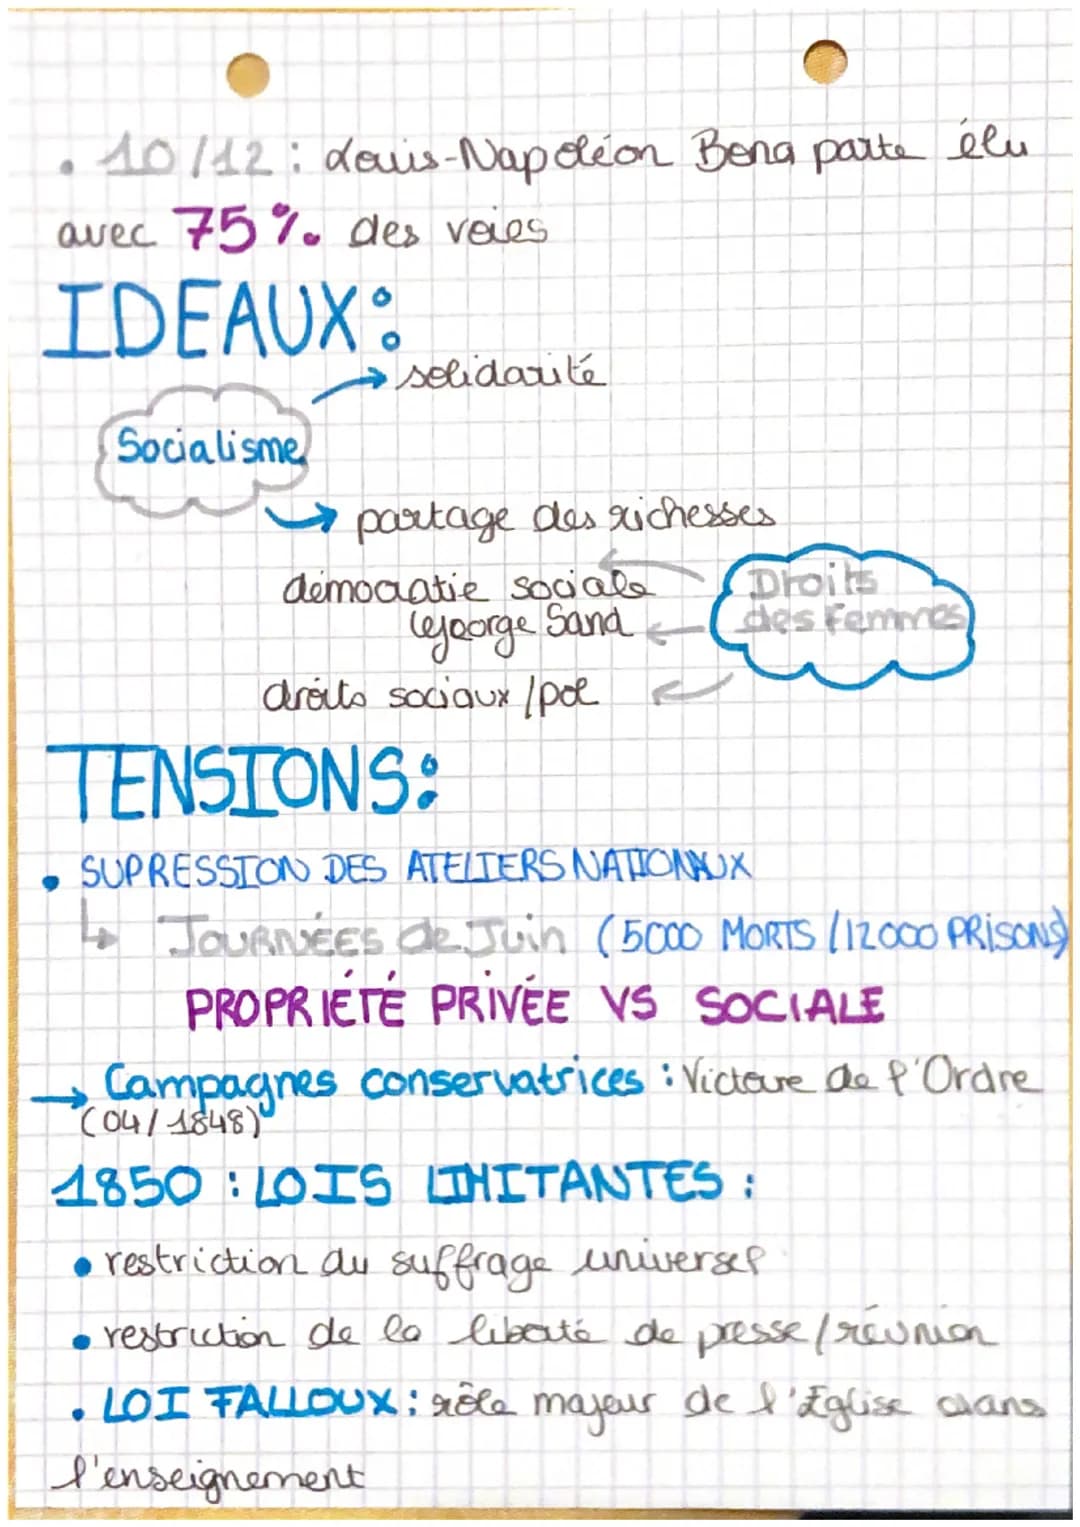 . 10/12 : Louis-Napoléon Bonaparte élu
avec 75%. des voies
IDEAUX:
→ solidarité
Socialisme
→ partage des richesses
démocratie sociale
Droits
des Femmes
George Sand
droits sociaux / pol
TENSIONS:
• SUPRESSION DES ATELIERS NATIONAUX
↳ JOURNÉES de Juin (5000 MORTS / 12000 PRISONS)
PROPRIÉTÉ PRIVÉE VS SOCIALE
→ Campagnes conservatrices : Victoire de l'Ordre
(04/1848)
1850 : LOIS LIMITANTES :
• restriction du suffrage universel
• restriction de la liberté de presse / réunion
• LOI FALLOUX : rôle majeur de l'Église dans
l'enseignement